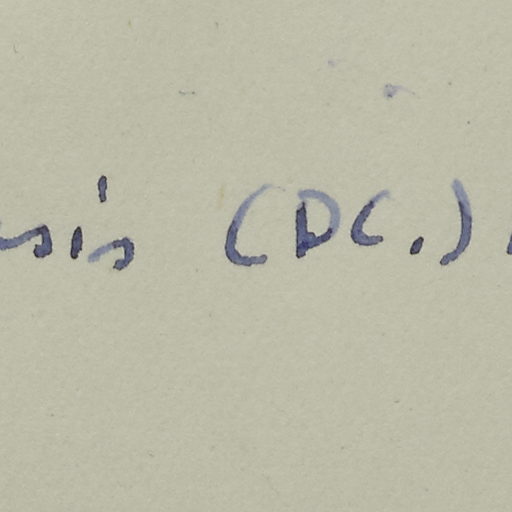 sis (DC.)